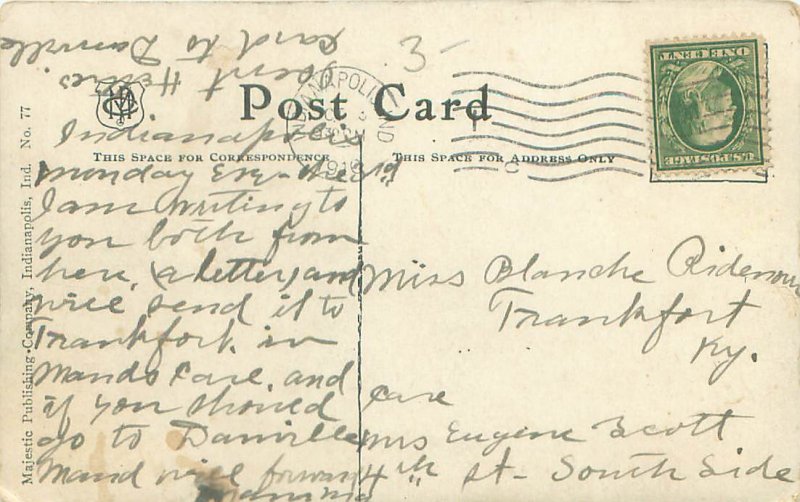 3-
Sent Helen's
Card to Danville
Post Card
THIS SPACE FOR CORRESPONDENCE
THIS SPACE FOR ADDRESS ONLY
INDIANAPOLIS IND
ONE CENT
U.S. POSTAGE
Majestic Publishing Company, Indianapolis, Ind. No. 77
Indianapolis
Monday Eve
I am writing to
you both from
here, (a letter) and
will send it to
Frankfort in
Mands Care, and
if you should
go to Danville
Mand will forward
Mamma
Miss Blanche Ridenour
Frankfort
Ky.
Care
Mrs Eugene Scott
4th St- South Side